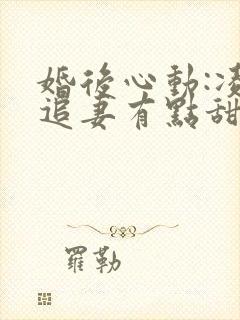 婚後心動:凌
追妻有點甜
羅勒